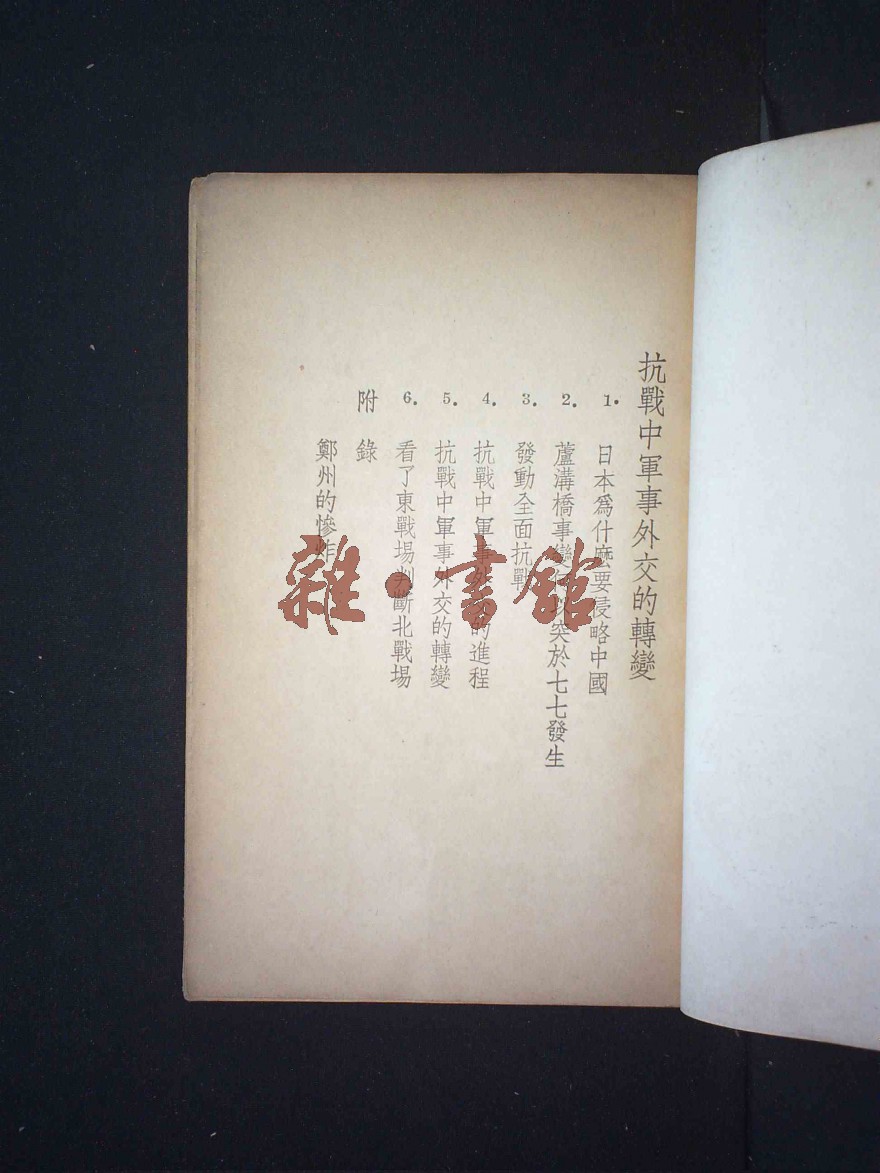 抗戰中軍事外交的轉變
1. 日本爲什麼要侵略中國
2. 蘆溝橋事變何以突於七七發生
3. 發動全面抗戰
4. 抗戰中軍事外交的進程
5. 抗戰中軍事外交的轉變
6. 看了東戰場判斷北戰場
附錄
鄭州的慘炸
雜·書館